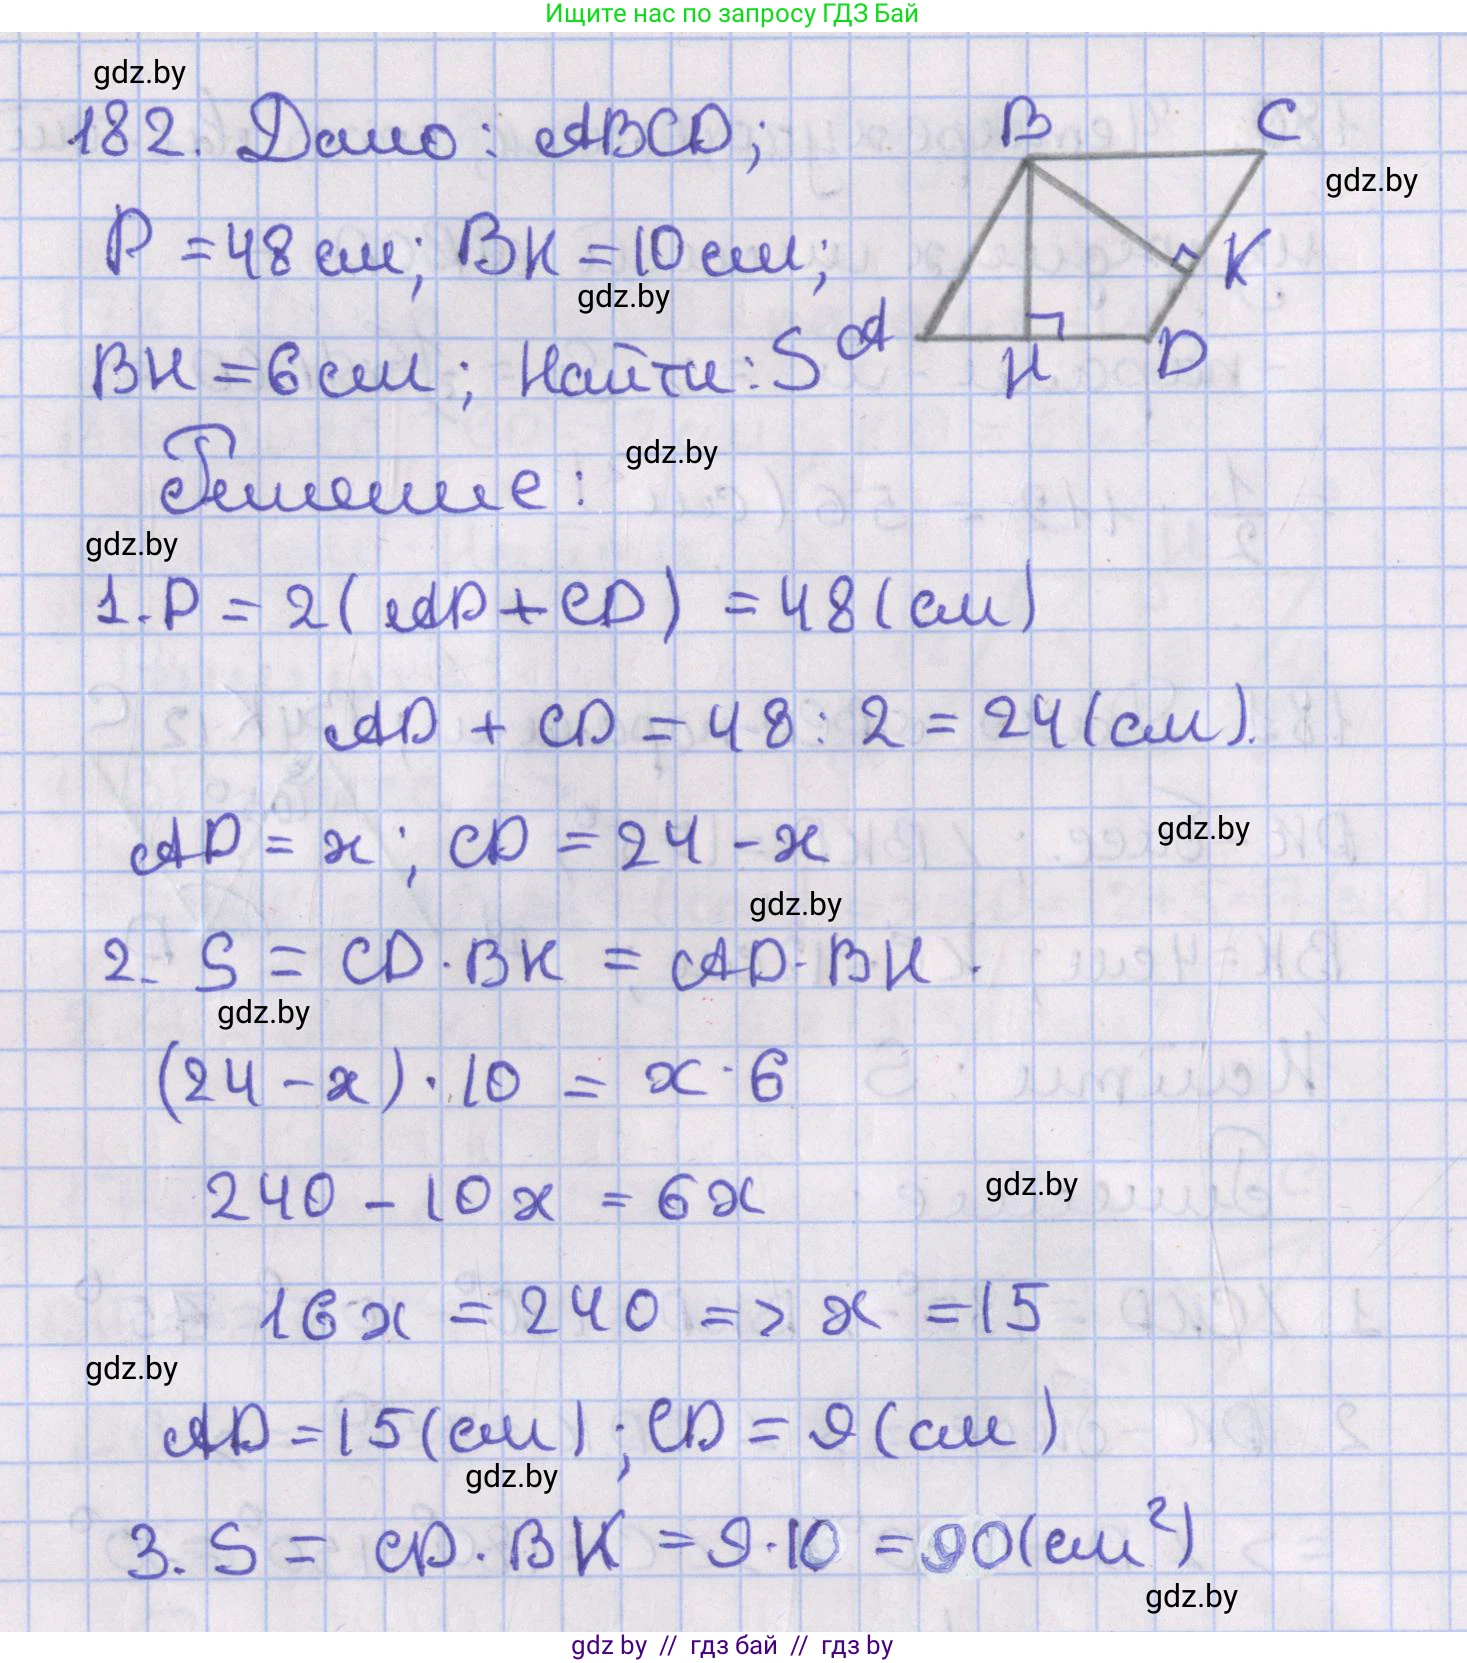 Ищите нас по запросу ГДЗ Бай
gdz.by
182. Дано: ABCD;
B C
gdz.by
P = 48 см; BK = 10 см;
K
gdz.by
BH = 6 см; Найти: S
A H D
Решение:
gdz.by
gdz.by
1. P = 2(AD + CD) = 48 (см)
AD + CD = 48 : 2 = 24 (см).
gdz.by
AD = x; CD = 24 - x
gdz.by
2. S = CD · BK = AD · BH.
gdz.by
(24 - x) · 10 = x · 6
gdz.by
240 - 10x = 6x
16x = 240 => x = 15
gdz.by
AD = 15 (см); CD = 9 (см)
gdz.by
3. S = CD · BK = 9 · 10 = 90 (см²)
gdz.by
gdz by // гдз бай // гдз by